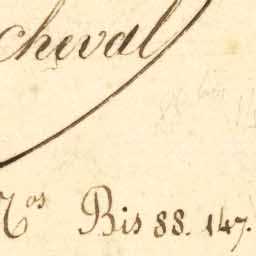 cheval
Nos Bis 88. 147.